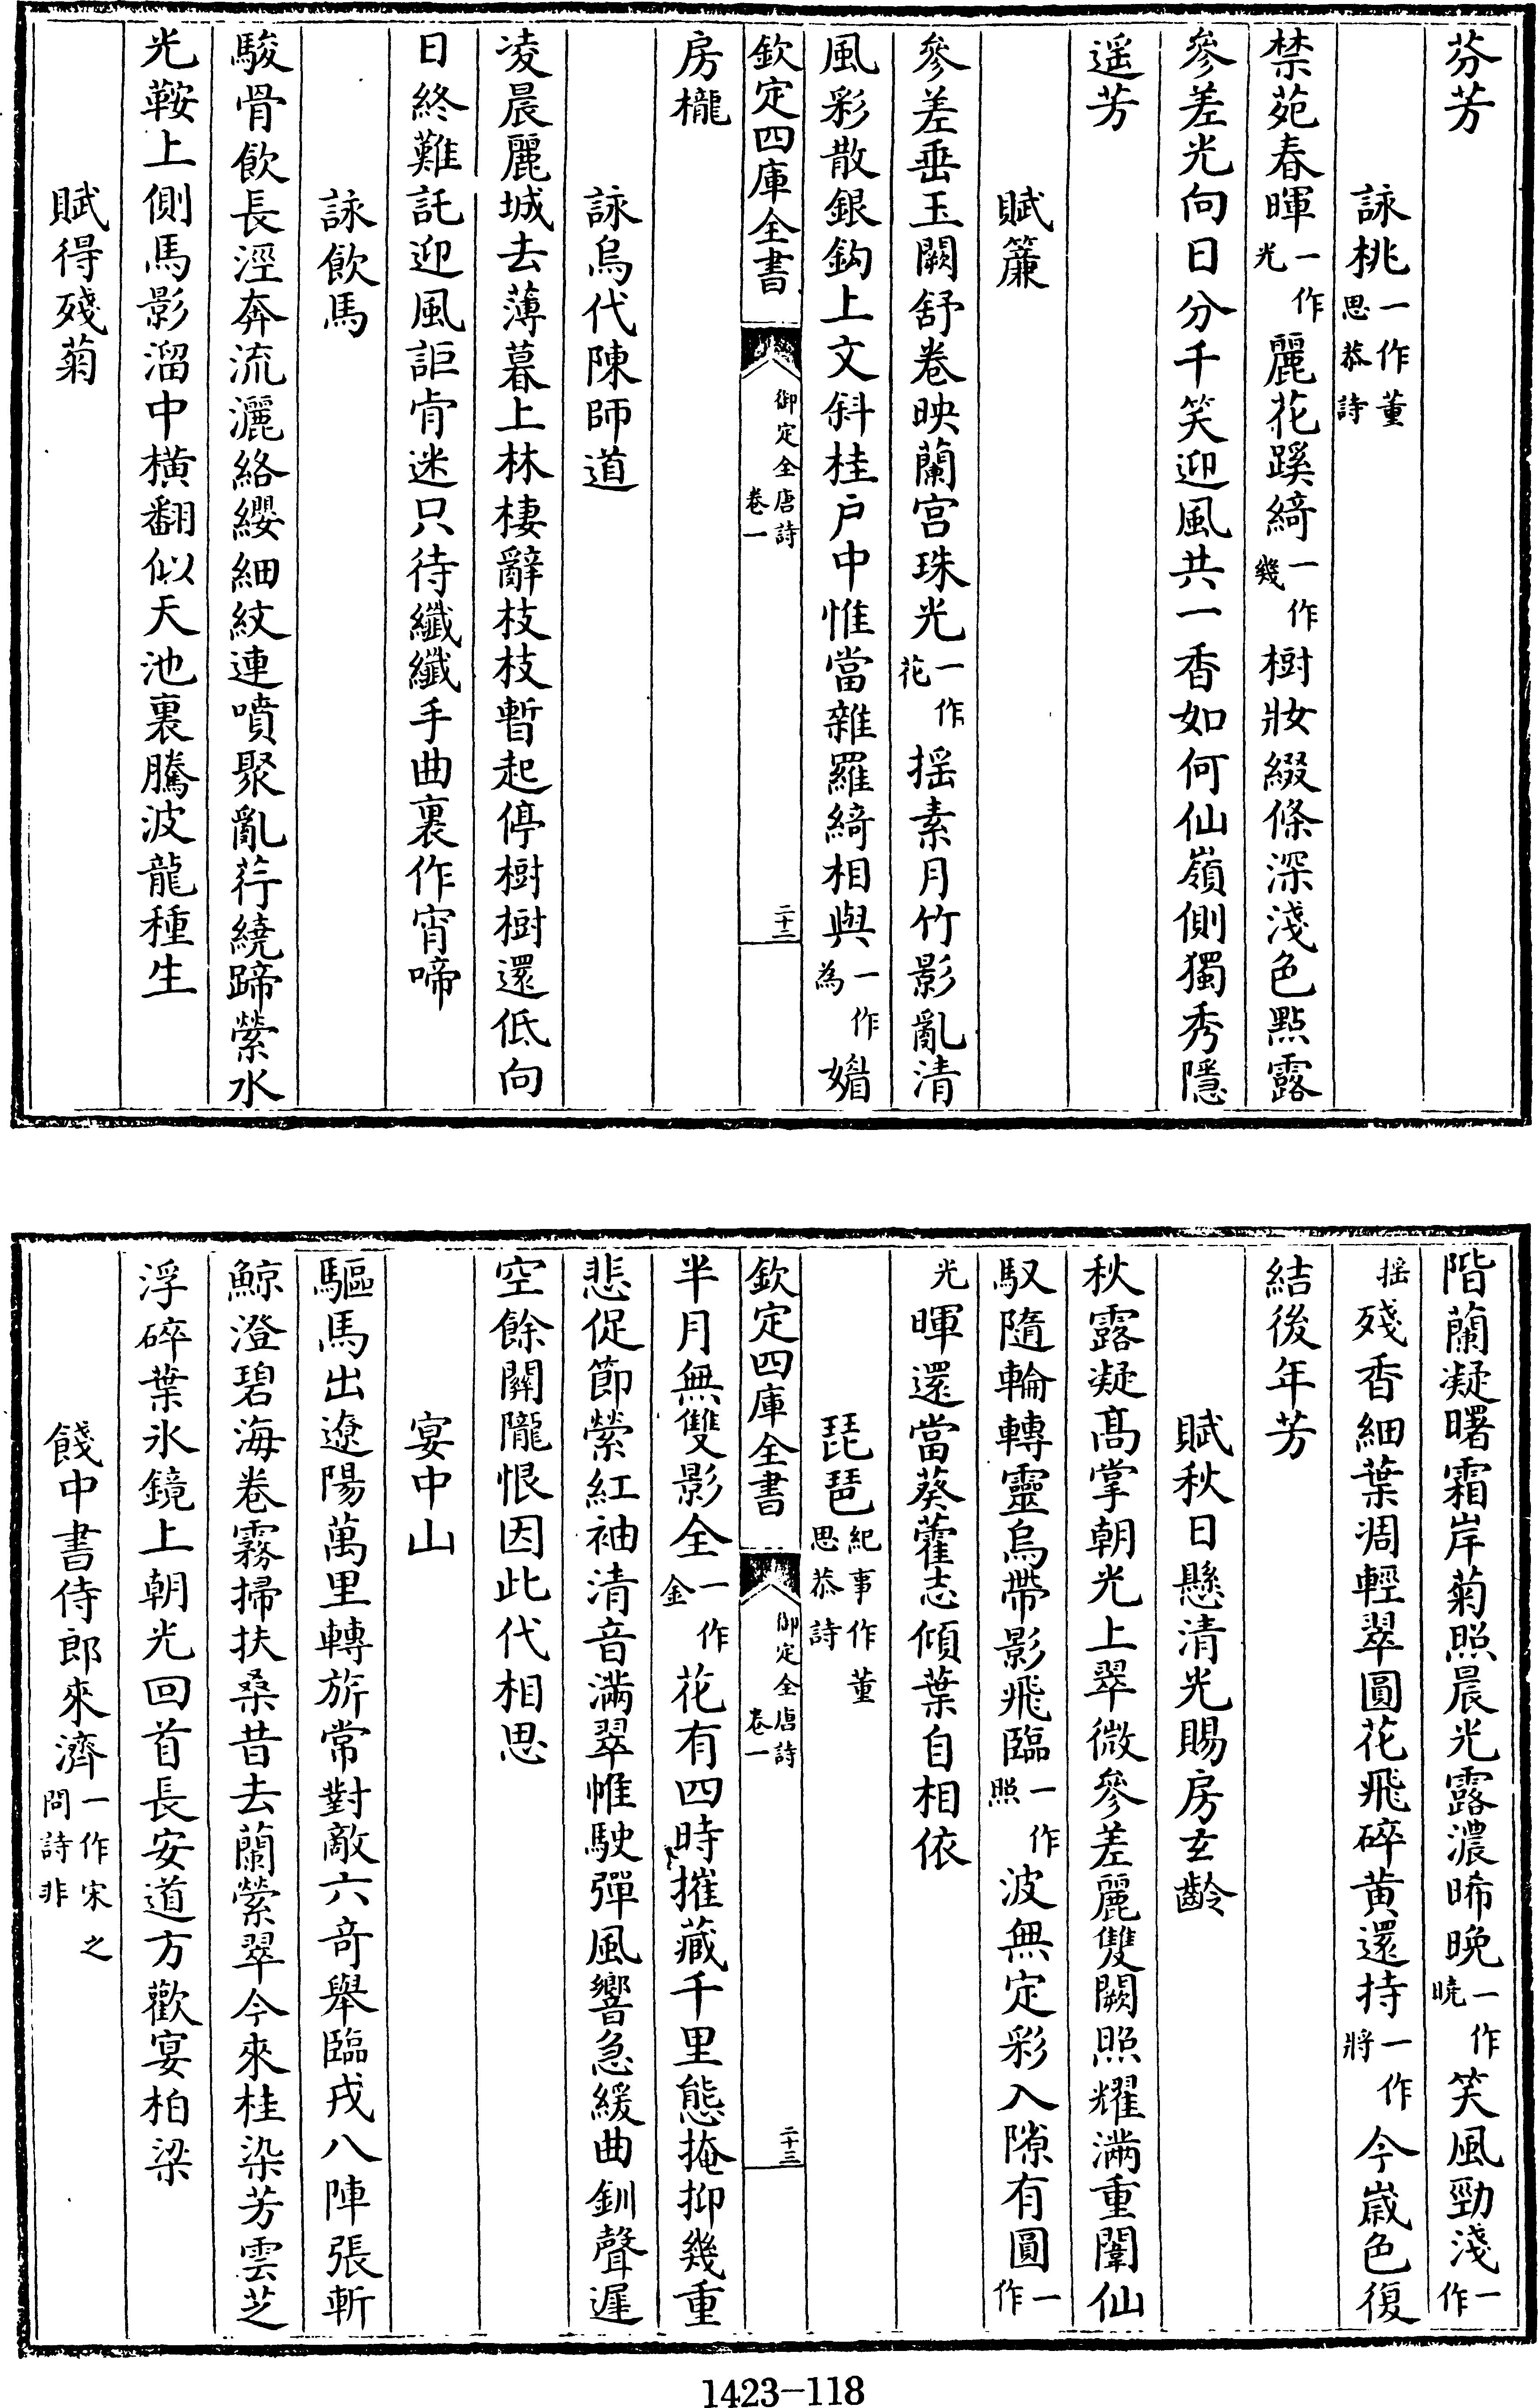 芬芳
詠桃一作董思恭詩
禁苑春暉一作光麗花蹊綺一作幾樹妝綴條深淺色㸃露
參差光向日分千笑迎風共一香如何仙嶺側獨秀隱
遥芳
賦簾
參差垂玉闕舒卷映蘭宫珠光一作花揺素月竹影亂清
風彩散銀鈎上文斜桂户中惟當雜羅綺相與一作為媚
欽定四庫全書 御定全唐詩卷一 二十二
房櫳
詠烏代陳師道
凌晨麗城去薄暮上林棲辭枝枝暫起停樹樹還低向
日終難託迎風詎肯迷只待纖纖手曲裏作宵啼
詠飲馬
駿骨飲長涇奔流灑絡纓細紋連噴聚亂荇繞蹄縈水
光鞍上側馬影溜中横翻似天池裏騰波龍種生
賦得殘菊
階蘭凝曙霜岸菊照晨光露濃晞晚一作曉笑風勁淺一作
揺殘香細葉凋輕翠圓花飛碎黄還持一作將今歲色復
結後年芳
賦秋日懸清光賜房玄齡
秋露凝髙掌朝光上翠微參差麗雙闕照耀滿重闈仙
馭隨輪轉靈烏帶影飛臨一作照波無定彩入隙有圓一作
光暉還當葵藿志傾葉自相依
琵琶紀事作董思恭詩
欽定四庫全書 御定全唐詩卷一 二十三
半月無雙影全一作金花有四時摧藏千里態掩抑幾重
悲促節縈紅袖清音滿翠帷駛彈風響急緩曲釧聲遲
空餘闗隴恨因此代相思
宴中山
驅馬出遼陽萬里轉旂常對敵六竒舉臨戎八陣張斬
鯨澄碧海卷霧掃扶桑昔去蘭縈翠今來桂染芳雲芝
浮碎葉氷鏡上朝光回首長安道方歡宴柏梁
餞中書侍郎來濟一作宋之問詩非
1423-118